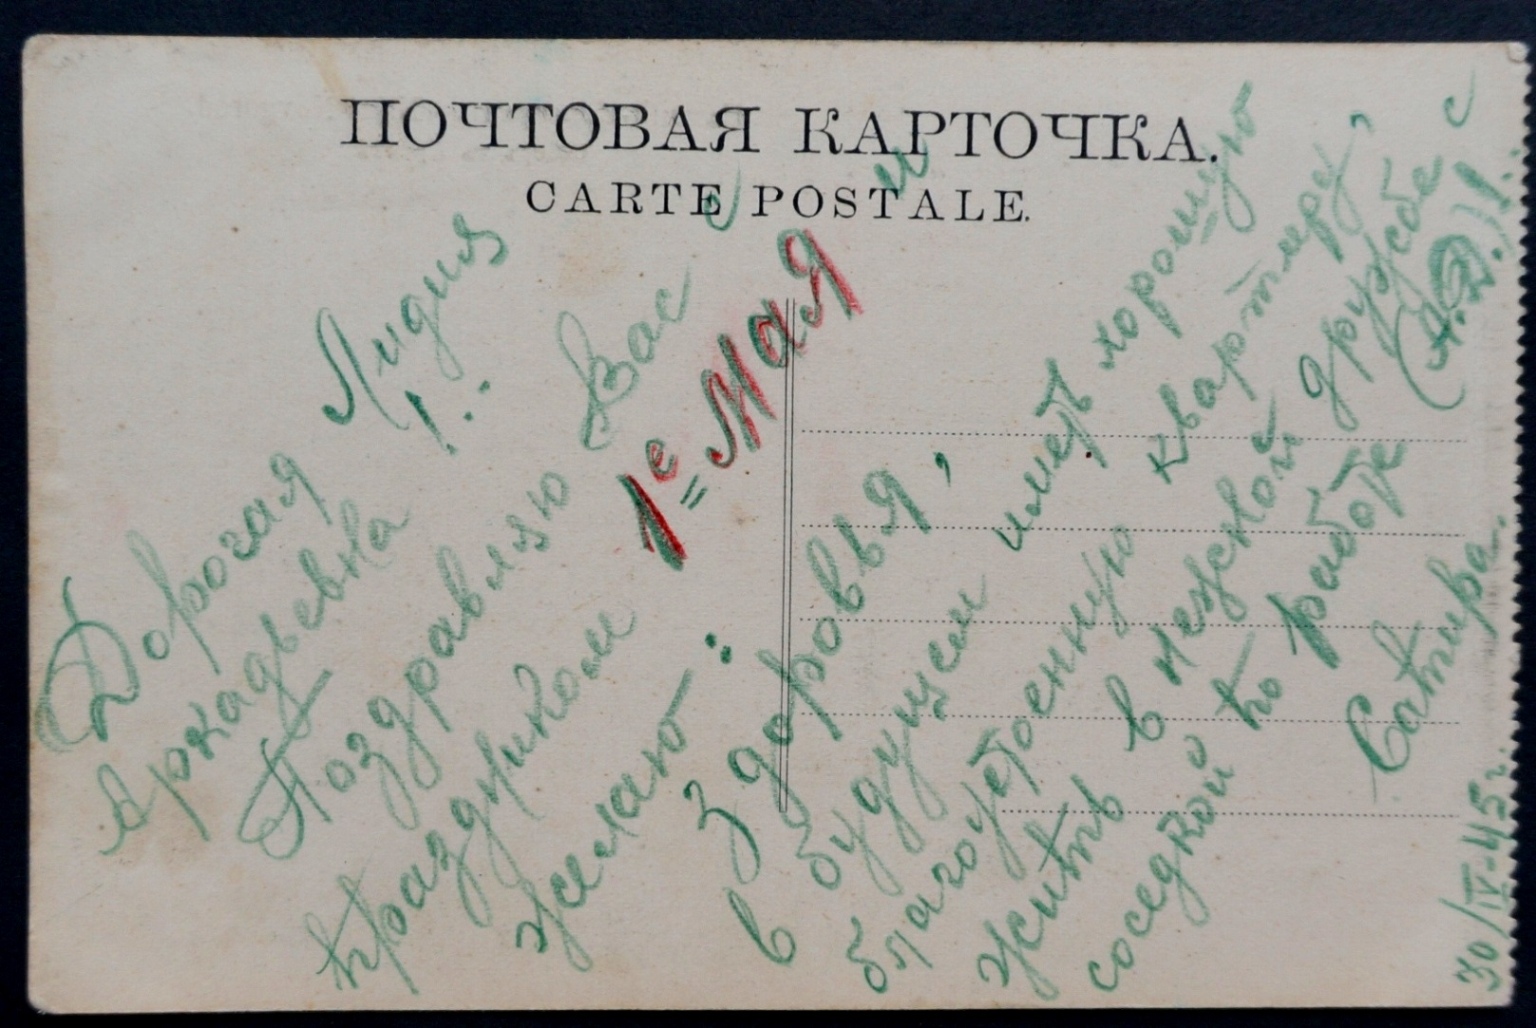 ПОЧТОВАЯ КАРТОЧКА.
CARTE POSTALE.
Дорогая Лидия
Аркадьевна !..
Поздравляю Вас с
праздником 1е Мая и
желаю:
здоровья,
в будущем иметь хорошую
благоустоенную квартиру,
жить в нежной дружбе с
соседкой по работе (А.Д.)!..
Сатира.
30/IV-45г.